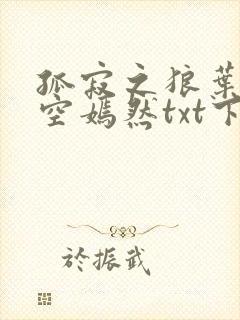 孤寂之狼葉
空嫣然txt下
於振武